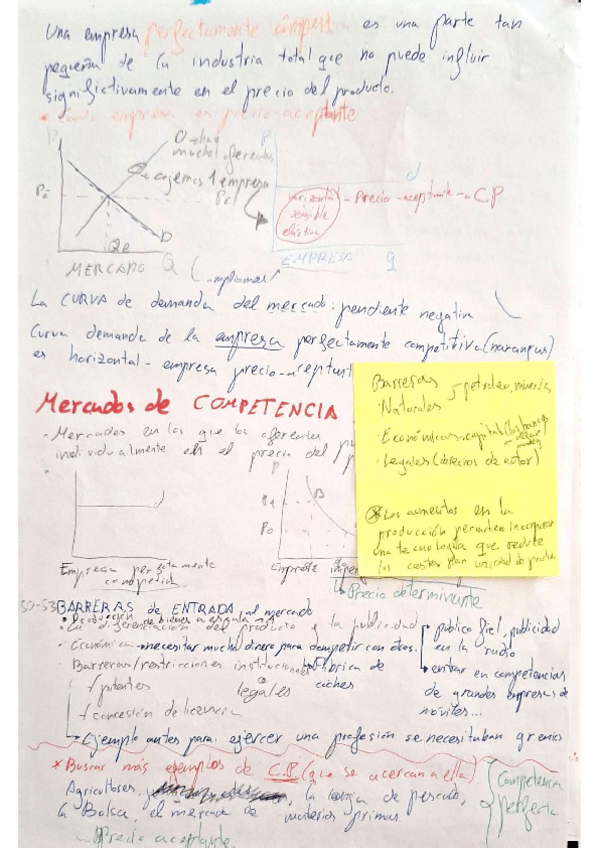 Una empresa perfectamente competi es una parte tan
pequeña de la industria total que no puede influir
significtivamente en el precio del producto.
* Cada empresa es precio-aceptante
O →hay
muchos oferentes
Pe
Qe
D
MERCADO Q
cogemos 1 empresa
P
Pe
d
horizontal
sensible
elástica
- Precio-aceptante → C.P
EMPRESA q
La CURVA de demanda del mercado: pendiente negativa
Curva demanda de la empresa perfectamente competitiva (naranjas)
es horizontal - empresa precio-aceptant
Mercados de COMPETENCIA
· Mercados en los que los oferentes
individualmente en el precio del
Empresa perfectamente
P
P1
B
P0
Empresa
↳ Precio determinante
Barreras
· Naturales
petróleo, minerales
· Económicas → capital (los bancos
· Legales (derechos de autor)
* Los aumentos en la
producción permiten incorporar
una tecnología que reduce
los costes por unidad de
50-53 BARRERAS de ENTRADA al mercado
• Producción de bienes a escala
• La diferenciación del producto y la publicidad
→ público fiel, publicidad
en la radio
· Económica → necesitar mucho dinero para competir con otros.
→ entrar en competencias
de grandes empresas de
móviles...
- Barreras/restricciones institucionales
legales
Fábrica de
coches
√ patentes
√ concesión de licencia
→ Ejemplo antes para ejercer una profesión se necesitaban gremios
* Buscar más ejemplos de C.P (que se acercan a ella)
Agricultores, la lonja de pescado,
la Bolsa, el mercado de materias primas
Competencia
perfecta
Precio aceptante